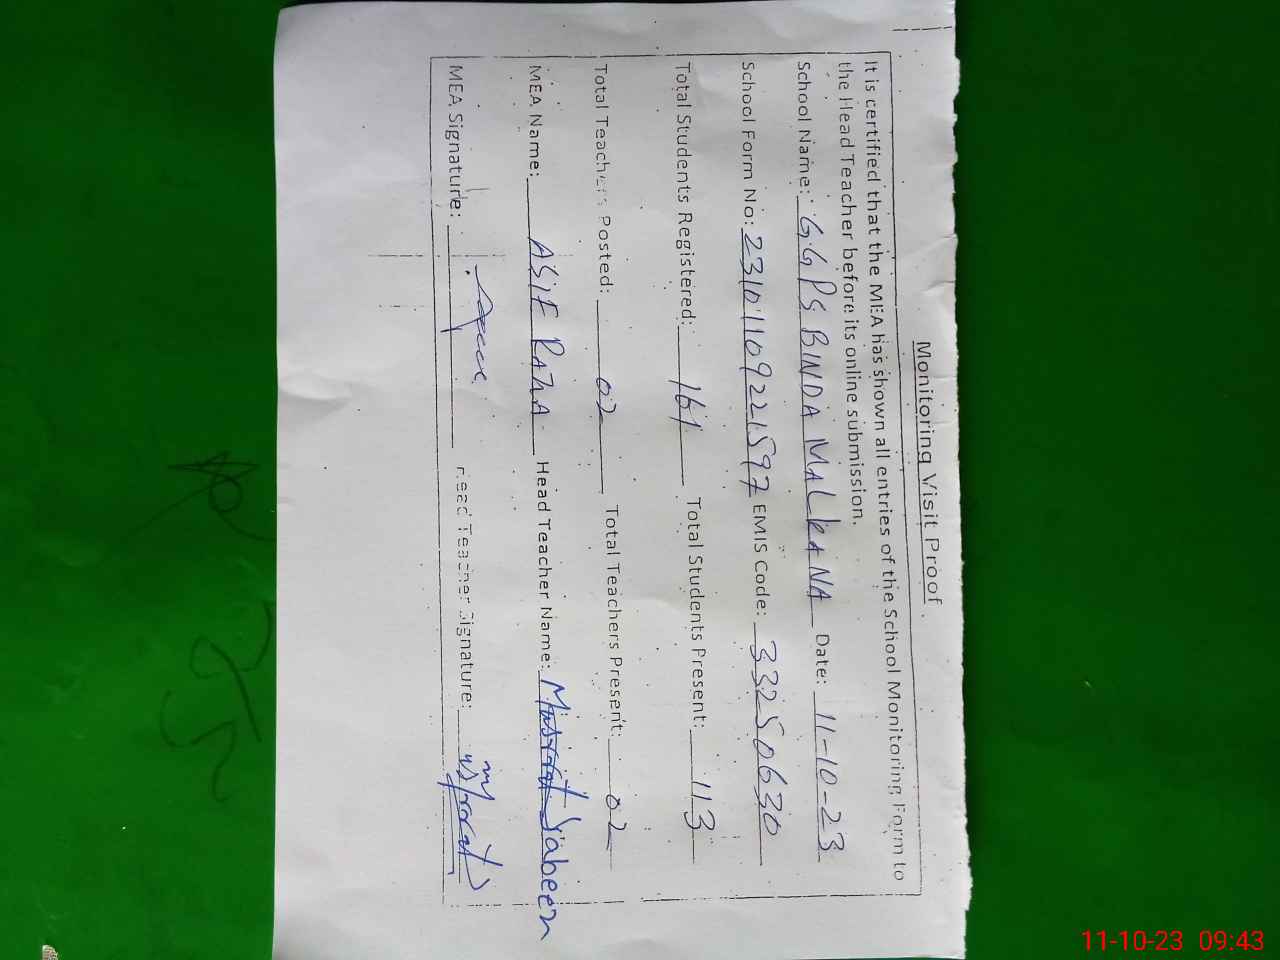 Monitoring Visit Proof
It is certified that the MEA has shown all entries of the School Monitoring Form to
the Head Teacher before its online submission.
School Name: GGPS BINDA MALKANA Date: 11-10-23
School Form No: 23101109221597 EMIS Code: 33250630
Total Students Registered: 161 Total Students Present: 113
Total Teachers Posted: 02 Total Teachers Present: 02
MEA Name: ASIF RAZA Head Teacher Name: Musrrat Jabeen
MEA Signature: Head Teacher Signature: Musrrat
11-10-23 09:43